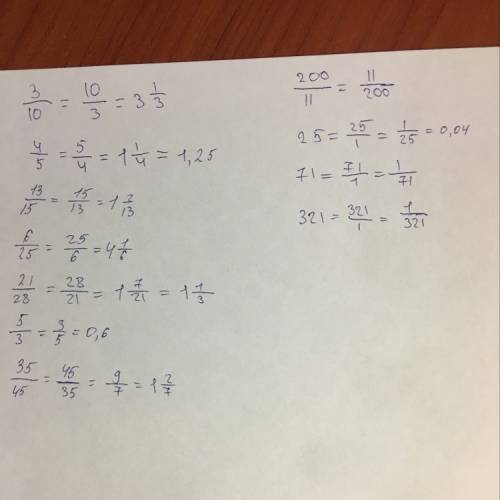 3/10 = 10/3 = 3 1/3
4/5 = 5/4 = 1 1/4 = 1,25
13/15 = 15/13 = 1 2/13
6/25 = 25/6 = 4 1/6
21/28 = 28/21 = 1 7/21 = 1 1/3
5/3 = 3/5 = 0,6
35/45 = 45/35 = 9/7 = 1 2/7
200/11 = 11/200
25 = 25/1 = 1/25 = 0,04
71 = 71/1 = 1/71
321 = 321/1 = 1/321